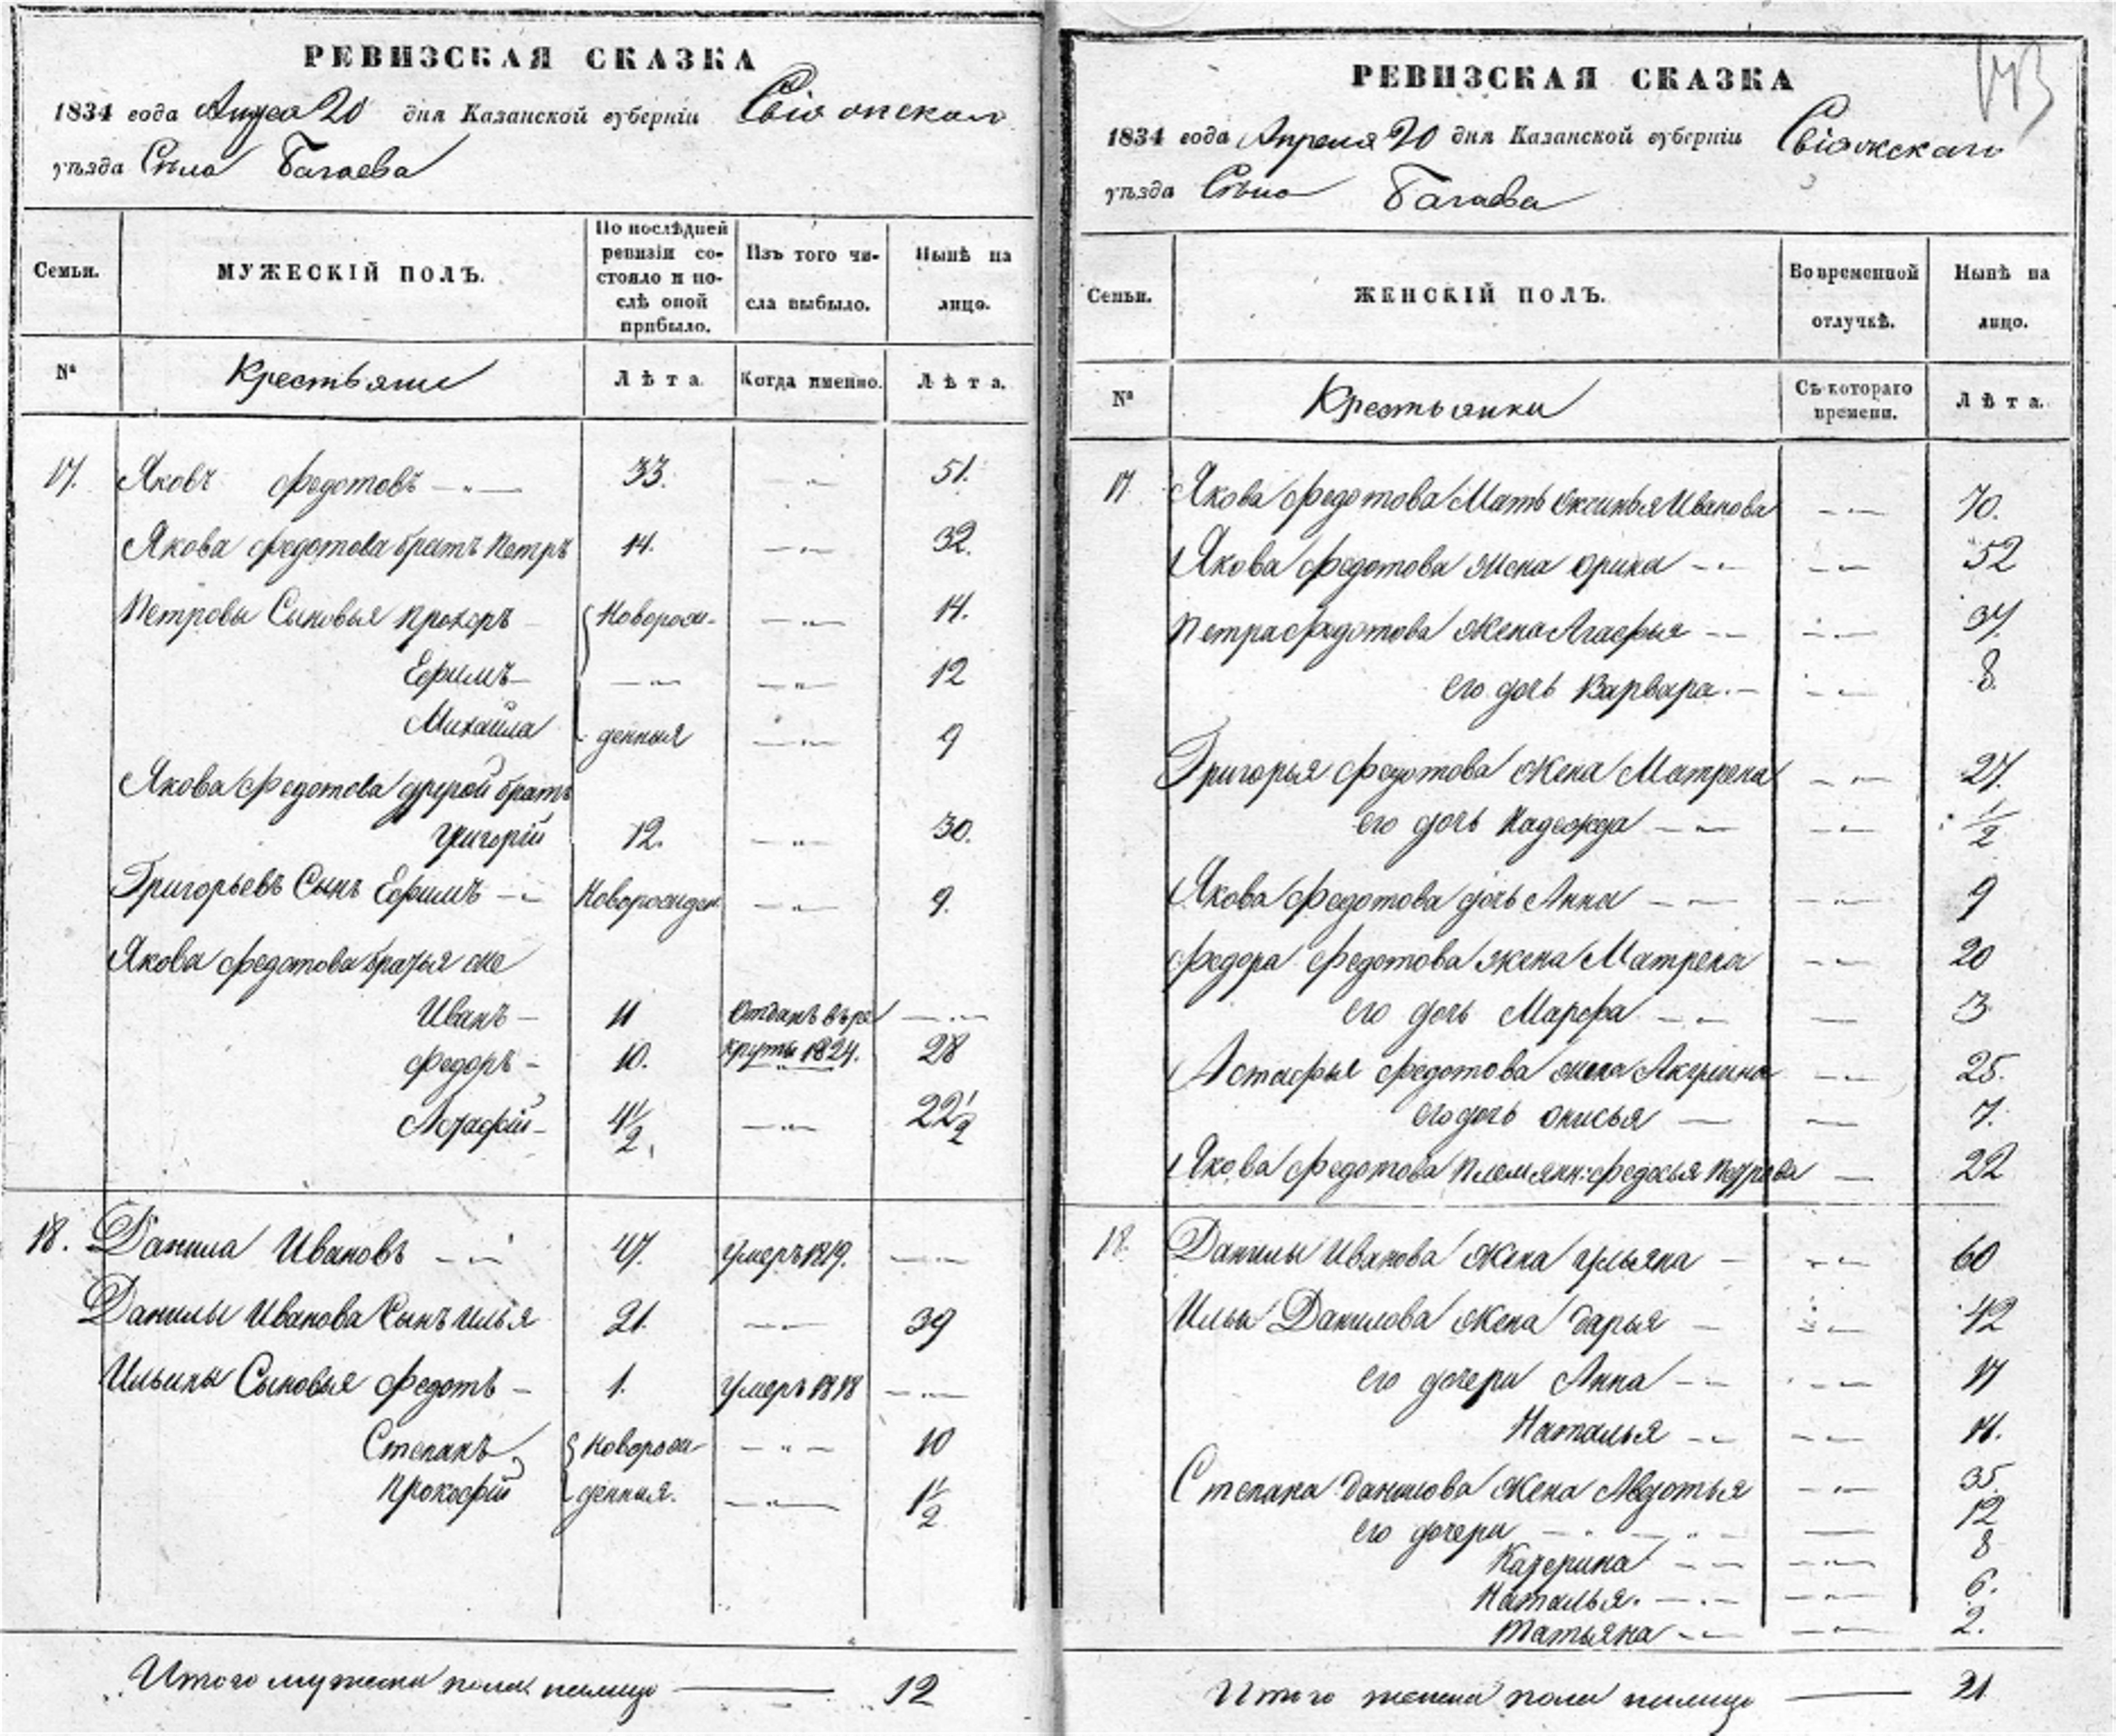 РЕВИЗСКАЯ СКАЗКА
1834 года Апреля 20 дня Казанской губерніи Свіяжскаго
уѣзда Сѣла Багаева
Семьи.
МУЖЕСКІЙ ПОЛЪ.
По послѣдней ревизіи состояло и послѣ оной прибыло.
Изъ того числа выбыло.
Нынѣ на лицо.
№
Крестьяне
Лѣта.
Когда именно.
Лѣта.
17. Яковъ Федотовъ 33. 51.
Якова Федотова братъ Петръ 14. 32.
Петровы Сыновья Прохоръ Новорож- 14.
Ефимъ 12
Михайла денныя 9
Якова Федотова другой братъ
Григорій 12. 30.
Григорьевъ Сынъ Ефимъ Новорожден. 9.
Якова Федотова братья же
Иванъ 11 Отданъ въ ре
Федоръ 10. круты 1824. 28
Астафій 4 1/2 22 1/2
18. Данила Ивановъ 47. Умеръ 1819.
Данилы Иванова Сынъ Илья 21. 39
Ильины Сыновья Федотъ 1. Умеръ 1818
Степанъ Новорож- 10
Прокофій денныя. 1 1/2
Итого мужеска пола налицо 12
РЕВИЗСКАЯ СКАЗКА
1834 года Апреля 20 дня Казанской губерніи Свіяжскаго
уѣзда Сѣло Багаева
Семьи.
ЖЕНСКІЙ ПОЛЪ.
Во временной отлучкѣ.
Нынѣ на лицо.
№
Крестьянки
Съ котораго времени.
Лѣта.
17 Якова Федотова Мать Оксинья Иванова 70.
Якова Федотова жена Орина 52
Петра Федотова жена Агафья 37.
его дочь Варвара. 8.
Григорья Федотова жена Матрена 27.
его дочь Надежда 1/2
Якова Федотова дочь Анна 9
Федора Федотова жена Матрена 20
его дочь Марфа 3
Астафья Федотова жена Акулина 25.
его дочь Онисья 7.
Якова Федотова племянн: Федосья Петрова 22
18. Данилы Иванова жена Ульяна 60
Ильи Данилова жена Дарья 42
его дочери Анна 17
Наталья 14.
Степана Данилова жена Авдотья 35.
его дочери 12
Катерина 8
Наталья. 6.
Татьяна 2.
Итого женска пола налицо 21